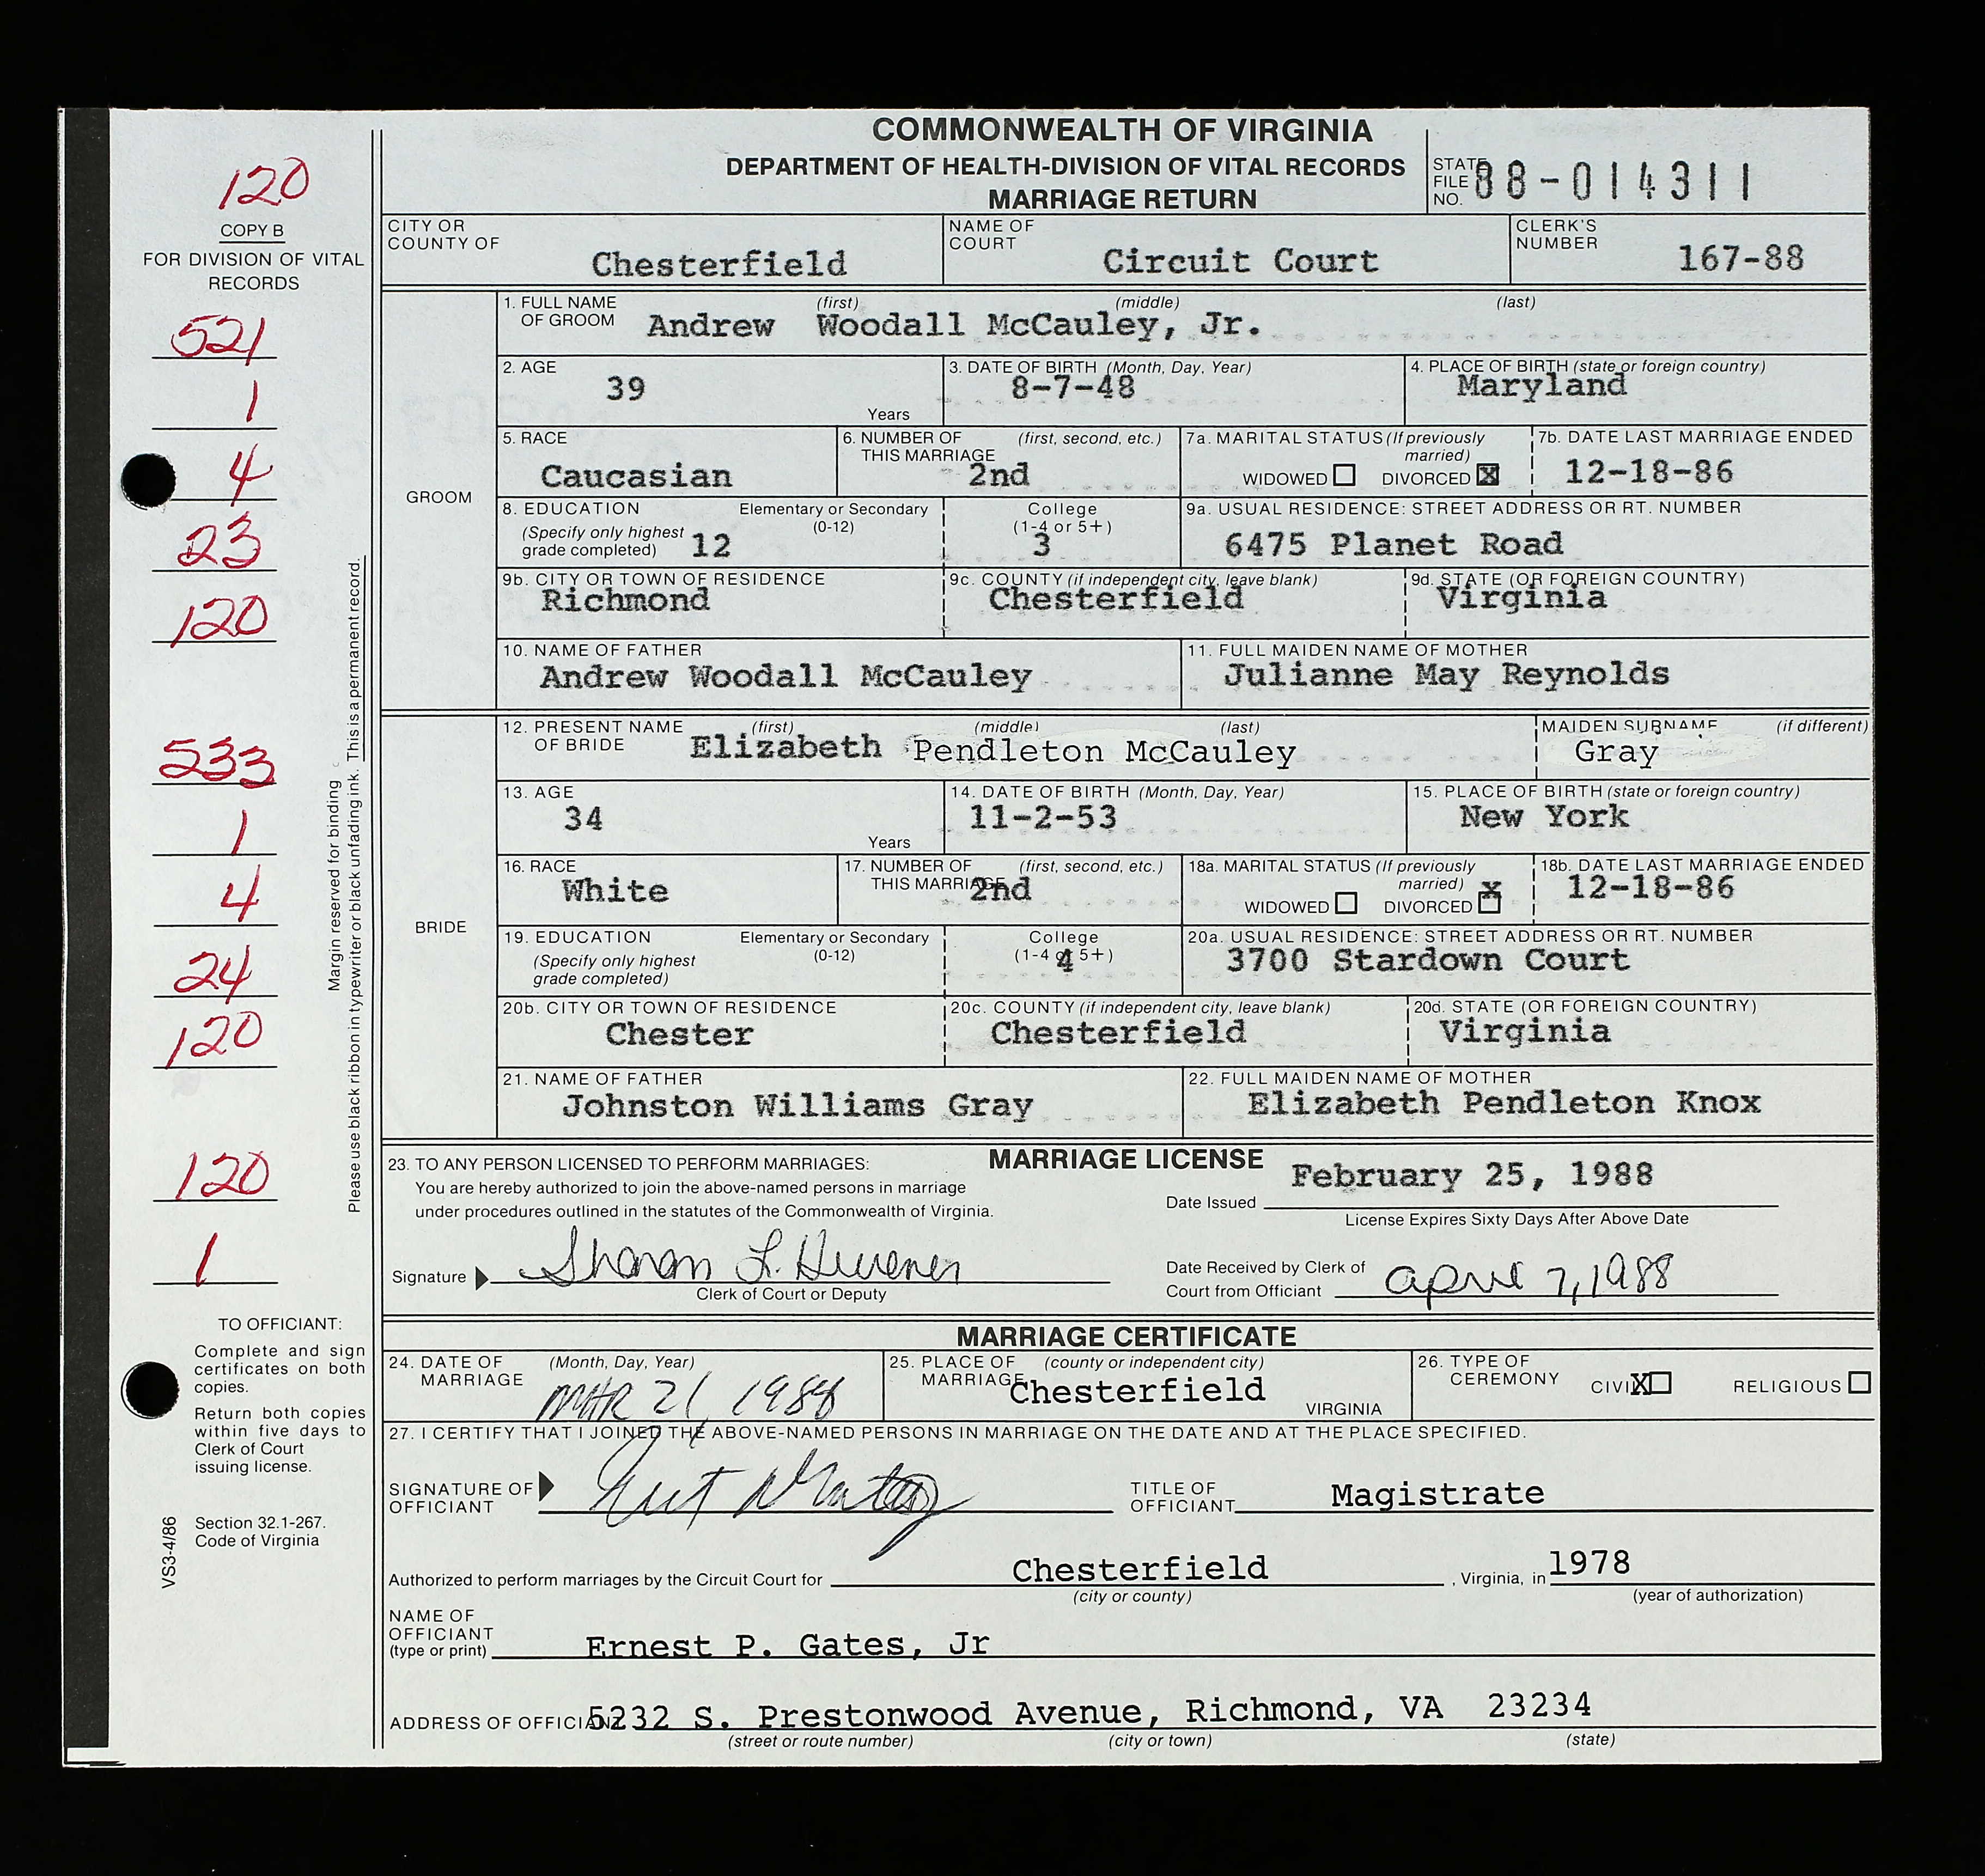 COMMONWEALTH OF VIRGINIA
DEPARTMENT OF HEALTH-DIVISION OF VITAL RECORDS
MARRIAGE RETURN
STATE FILE NO. 88-014311
120
COPY B
FOR DIVISION OF VITAL
RECORDS
521
1
4
23
120
533
1
4
24
120
120
1
Margin reserved for binding
Please use black ribbon in typewriter or black unfading ink. This is a permanent record.
TO OFFICIANT:
Complete and sign
certificates on both
copies.
Return both copies
within five days to
Clerk of Court
issuing license.
Section 32.1-267.
Code of Virginia
VS3-4/86
CITY OR COUNTY OF Chesterfield
NAME OF COURT Circuit Court
CLERK'S NUMBER 167-88
GROOM
1. FULL NAME OF GROOM (first) (middle) (last)
Andrew Woodall McCauley, Jr.
2. AGE 39 Years
3. DATE OF BIRTH (Month, Day, Year) 8-7-48
4. PLACE OF BIRTH (state or foreign country) Maryland
5. RACE Caucasian
6. NUMBER OF THIS MARRIAGE (first, second, etc.) 2nd
7a. MARITAL STATUS (If previously married) WIDOWED DIVORCED X
7b. DATE LAST MARRIAGE ENDED 12-18-86
8. EDUCATION (Specify only highest grade completed) Elementary or Secondary (0-12) 12
College (1-4 or 5+) 3
9a. USUAL RESIDENCE: STREET ADDRESS OR RT. NUMBER 6475 Planet Road
9b. CITY OR TOWN OF RESIDENCE Richmond
9c. COUNTY (if independent city, leave blank) Chesterfield
9d. STATE (OR FOREIGN COUNTRY) Virginia
10. NAME OF FATHER Andrew Woodall McCauley
11. FULL MAIDEN NAME OF MOTHER Julianne May Reynolds
BRIDE
12. PRESENT NAME OF BRIDE (first) (middle) (last)
Elizabeth Pendleton McCauley
MAIDEN SURNAME (if different) Gray
13. AGE 34 Years
14. DATE OF BIRTH (Month, Day, Year) 11-2-53
15. PLACE OF BIRTH (state or foreign country) New York
16. RACE White
17. NUMBER OF THIS MARRIAGE (first, second, etc.) 2nd
18a. MARITAL STATUS (If previously married) WIDOWED DIVORCED X
18b. DATE LAST MARRIAGE ENDED 12-18-86
19. EDUCATION (Specify only highest grade completed) Elementary or Secondary (0-12)
College (1-4 or 5+) 4
20a. USUAL RESIDENCE: STREET ADDRESS OR RT. NUMBER 3700 Stardown Court
20b. CITY OR TOWN OF RESIDENCE Chester
20c. COUNTY (if independent city, leave blank) Chesterfield
20d. STATE (OR FOREIGN COUNTRY) Virginia
21. NAME OF FATHER Johnston Williams Gray
22. FULL MAIDEN NAME OF MOTHER Elizabeth Pendleton Knox
MARRIAGE LICENSE
23. TO ANY PERSON LICENSED TO PERFORM MARRIAGES:
You are hereby authorized to join the above-named persons in marriage
under procedures outlined in the statutes of the Commonwealth of Virginia.
Date Issued February 25, 1988
License Expires Sixty Days After Above Date
Signature Sharon L.
Clerk of Court or Deputy
Date Received by Clerk of
Court from Officiant April 7, 1988
MARRIAGE CERTIFICATE
24. DATE OF MARRIAGE (Month, Day, Year) MAR 21, 1988
25. PLACE OF MARRIAGE (county or independent city) Chesterfield VIRGINIA
26. TYPE OF CEREMONY CIVIL X RELIGIOUS
27. I CERTIFY THAT I JOINED THE ABOVE-NAMED PERSONS IN MARRIAGE ON THE DATE AND AT THE PLACE SPECIFIED.
SIGNATURE OF OFFICIANT
TITLE OF OFFICIANT Magistrate
Authorized to perform marriages by the Circuit Court for Chesterfield, Virginia, in 1978
(city or county) (year of authorization)
NAME OF OFFICIANT (type or print) Ernest P. Gates, Jr
ADDRESS OF OFFICIANT 5232 S. Prestonwood Avenue, Richmond, VA 23234
(street or route number) (city or town) (state)